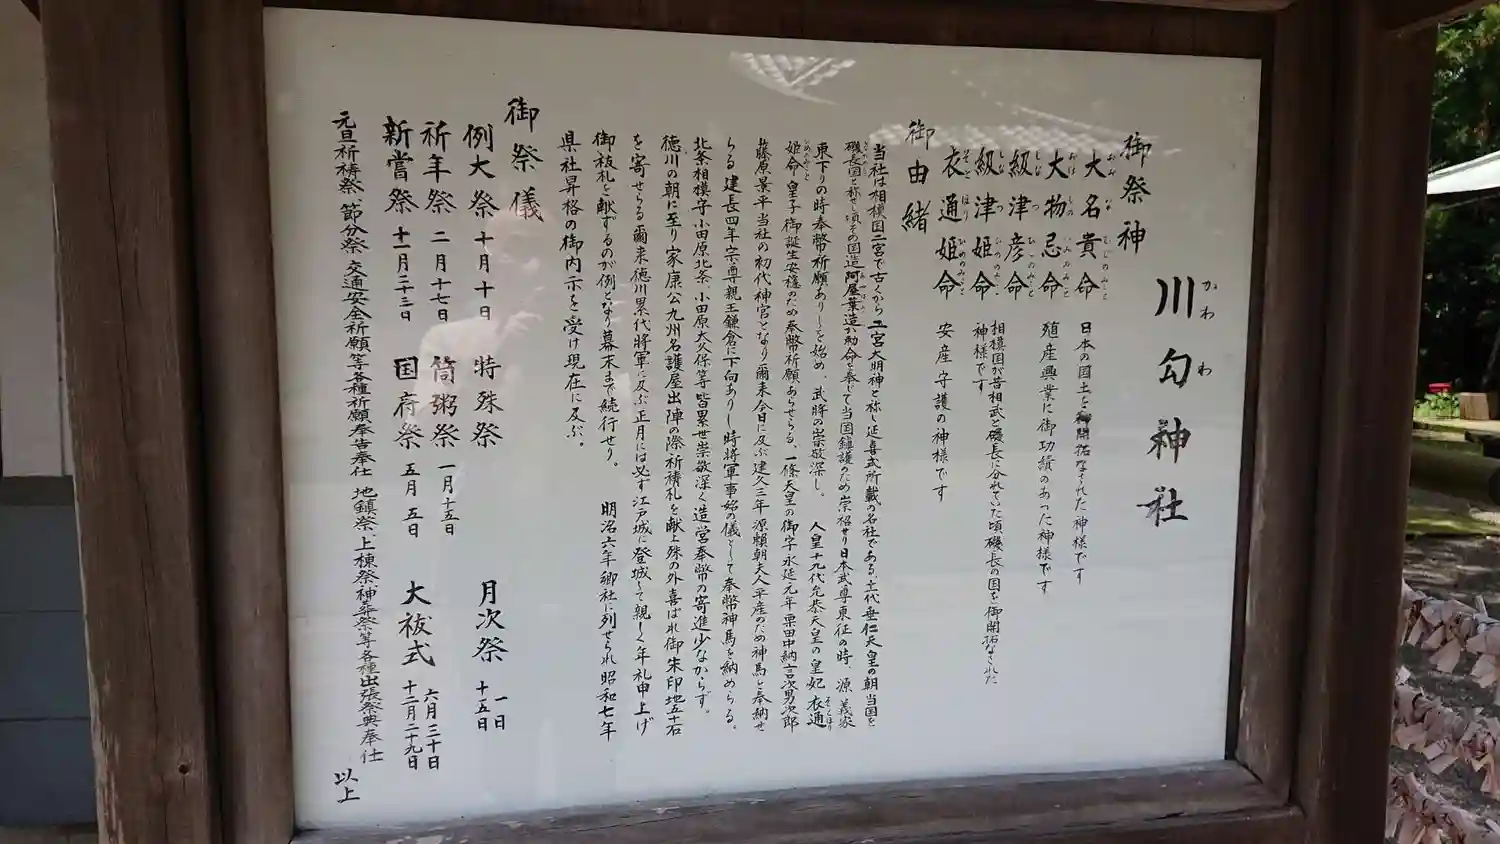 川勾神社
かわわ
御祭神
大名貴命 日本の国土を御開拓なされた神様です
大物忌命 殖産興業に御功績のあった神様です
級津彦命 相模国が昔相武と磯長に分れていた頃磯長の国を御開拓なされた
級津姫命 神様です
衣通姫命 安産守護の神様です
御由緒
当社は相模国二宮で古くから二宮大明神と称し延喜式所載の名社である。十一代垂仁天皇の朝当国を
磯長国と称せし頃その国造阿屋葉造が勅命を奉じて当国鎮護のため崇祀せり日本武尊東征の時、源義家
東下りの時奉幣祈願ありしを始め、武将の崇敬深し。 人皇十九代允恭天皇の皇妃衣通
姫命皇子御誕生安穏のため奉幣祈願あらせらる、一條天皇の御字永延元年粟田中納言次男次郎
藤原景平当社の初代神官となりて爾来今日に及ぶ建久三年源頼朝夫人平産のため神馬を奉納せ
らる建長四年宗尊親王鎌倉に下向ありし時将軍事始の儀として奉幣神馬を納めらる。
北条相模守小田原北条、小田原大久保等皆累世崇敬深く造営奉幣の寄進少なからず。
徳川の朝に至り家康公九州名護屋出陣の際祈祷札を献上殊の外喜ばれ御朱印地五十石
を寄せらる爾来徳川累代将軍に及ぶ正月には必ず江戸城に登城して親しく年礼申上げ
御祓札を献ずるのが例となり幕末まで続行せり。 明治六年郷社に列せられ昭和七年
県社昇格の御内示を受け現在に及ぶ。
御祭儀
例大祭 十月十日 特殊祭 月次祭 一日 十五日
祈年祭 二月十七日 筒粥祭 一月十五日
新嘗祭 十一月二十三日 国府祭 五月五日 大祓式 六月三十日 十二月二十九日
元旦祈祷祭、節分祭、交通安全祈願等各種祈願奉告奉仕 地鎮祭、上棟祭神葬祭等各種出張祭典奉仕
以上